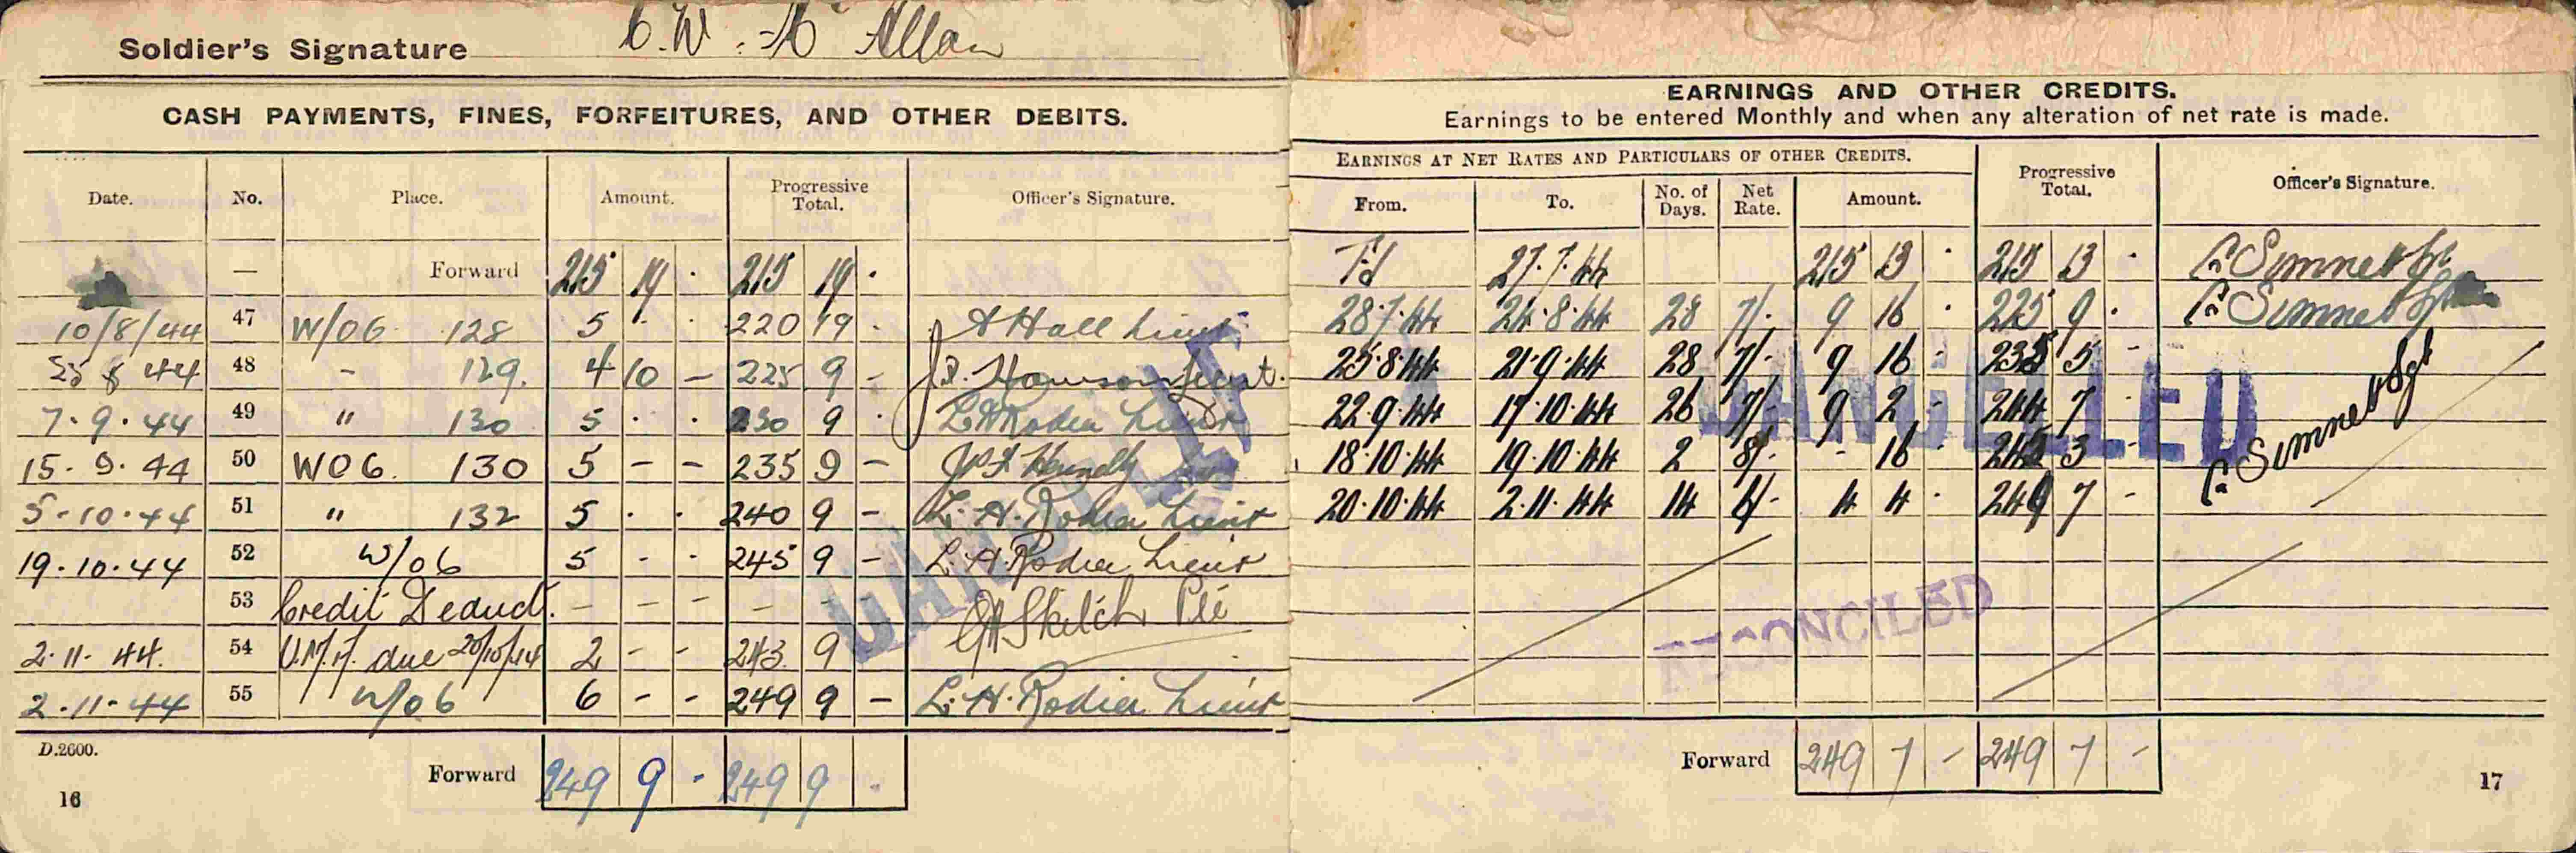 Soldier's Signature C. W. Mc Allan
CASH PAYMENTS, FINES, FORFEITURES, AND OTHER DEBITS.
Date. No. Place. Amount. Progressive Total. Officer's Signature.
— Forward 215 19 · 215 19 ·
10/8/44 47 W/06 128 5 · · 220 19 · A Hall Lieut
25 8 44 48 - 129. 4 10 — 225 9 — Lieut.
7·9·44 49 " 130 5 · · 230 9 · L. H. Rodier Lieut
15-9-44 50 W06. 130 5 — — 235 9 —
5-10-44 51 " 132 5 · · 240 9 — L. H. Rodier Lieut
19·10·44 52 W/06 5 - - 245 9 — L. H. Rodier Lieut
53 Credit Deduct. — — — — — —
2·11·44. 54 due 20/10/44 2 - - 243 9 Sketch Pte
2·11·44 55 W/06 6 - - 249 9 — L. H. Rodier Lieut
D.2600.
Forward 249 9 · 249 9 ·
16
CANCELLED
EARNINGS AND OTHER CREDITS.
Earnings to be entered Monthly and when any alteration of net rate is made.
EARNINGS AT NET RATES AND PARTICULARS OF OTHER CREDITS.
From. To. No. of Days. Net Rate. Amount. Progressive Total. Officer's Signature.
Fd 27.7.44 215 13 · 215 13 · Sumner
28.7.44 24.8.44 28 7/- 9 16 · 225 9 · Sumner
25.8.44 21.9.44 28 7/- 9 16 · 235 5 -
22.9.44 17.10.44 26 7/- 9 2 - 244 7 -
18.10.44 19.10.44 2 8/- - 16 · 245 3 - Sumner Sgt
20.10.44 2.11.44 14 6/- 4 4 · 249 7 -
CANCELLED
RECONCILED
Forward 249 7 — 249 7 —
17